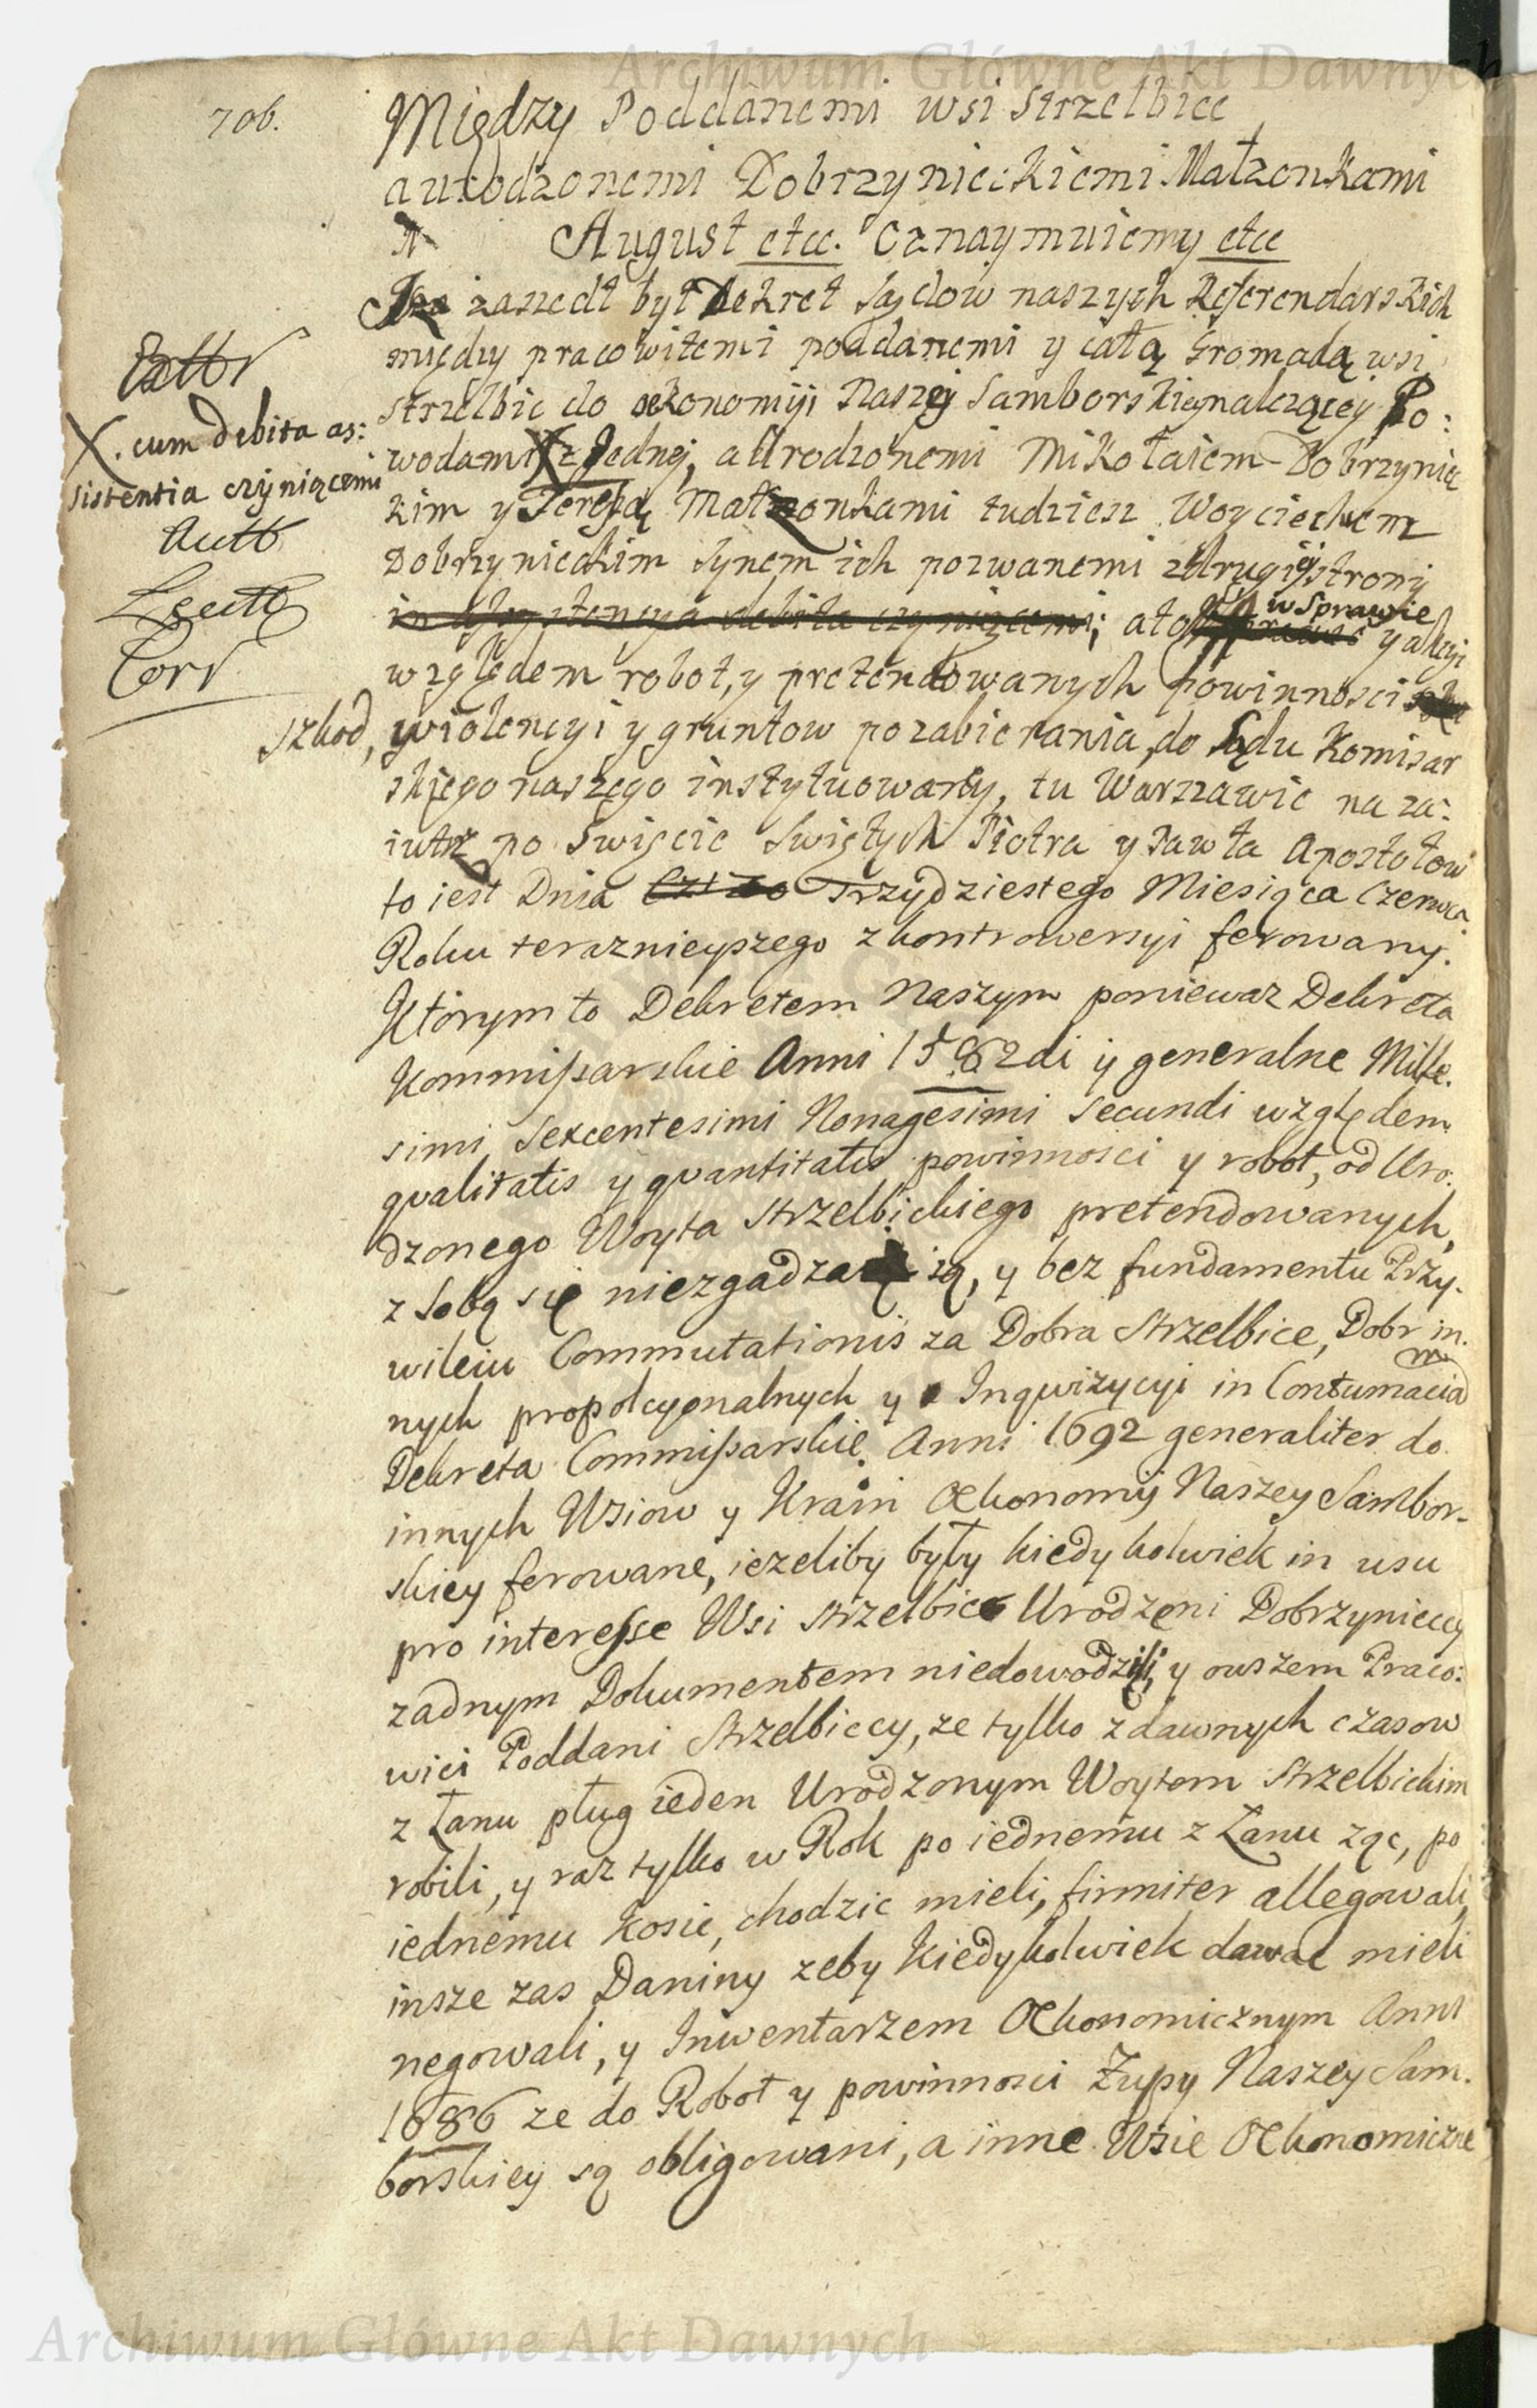 Archiwum Główne Akt Dawnych
706.
Między Poddanemi wsi Strzelbice
a urodzonemi Dobrzynieckiemi Małzonkami
August etcc. Oznaymuiemy etcc
zaszedł był Dekret Sądow naszych Referendarskich
między pracowitemi poddanemi y całą Gromadą wsi
Strzelbic do oekonomiji Naszej Samborskiey nalezącey Po:
X. cum debita as:
sistentia czyniącemi
wodami X z Jednej, a Urodzonemi Mikołaiem Dobrzyniec
kim y Teressą Małzonkami tudziesz Woyciechem
Dobrzynieckim synem ich pozwanemi z drugiej strony
in assystencya debita czyniącemi; a to w Sprawie y akcyi
względem robot, y pretendowanych powinnosci
szkod, wiolencyi y gruntow pozabierania, do Sądu Komisar
skiego naszego instytuowany, tu Warszawie na za:
iutrz po Swięcie Swiętych Piotra y Pawła Apostołow
to iest Dnia Trzydziestego Miesiąca Czerwca
Roku teraznieyszego z kontrowersyi ferowany.
Ktorym to Dekretem Naszym poniewaz Dekreta
Kommissarskie Anni 1562di y generalne Mille.
simi Sexcentesimi Nonagesimi Secundi względem
qvalitatis y qvantitatis powinnosci y robot, od Uro.
dzonego Woyta Strzelbickiego pretendowanych,
z sobą się niezgadzaią, y bez fundamentu Przy.
wileiu Commutationis za Dobra Strzelbice, Dobr in.
nych propolcyonalnych y Inqwizycyi in Contumaciam
Dekreta Commissarskie Anni 1692 generaliter do
innych Wsiow y Krain Oekonomij Naszey Sambor-
skiey ferowane, iezeliby były kiedykolwiek in usu
pro interesse Wsi Strzelbice Urodzeni Dobrzynieccy
zadnym Dokumentem niedowodzili, y owszem Praco:
wici Poddani Strzelbiccy, ze tylko z dawnych czasow
z Łanu pług ieden Urodzonym Woytom Strzelbickim
robili, y raz tylko w Rok po iednemu z Łanu ząc, po
iednemu kosic, chodzic mieli, firmiter allegowali,
insze zas Daniny zeby kiedykolwiek dawac mieli
negowali, y Inwentarzem Oekonomicznym Anni
1686 ze do Robot y powinnosci Zupy Naszey Sam.
borskiey są obligowani, a inne Wsie Oekonomiczne
Archiwum Główne Akt Dawnych